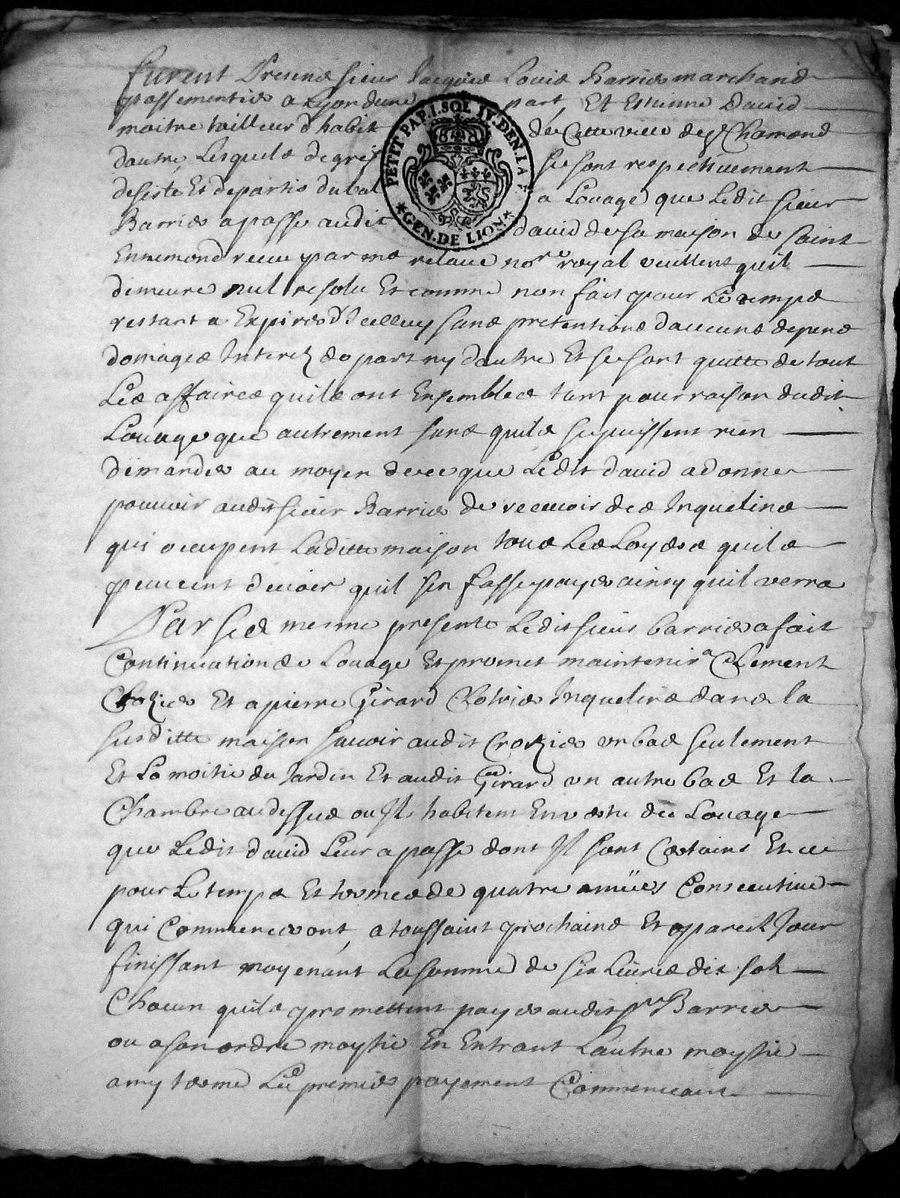 furent presents sieur Jacques Louis Barrier marchand
passementier a Lyon dune part, Et Estienne David
maitre tailleur d'habit de Cette ville de St Chamond
dautre Lesquels de gre se sont respectivement
desisté Et departis du bal a Louage que Ledit sieur
Barrier a passé audit David de sa maison de Saint
Ennemond receu par me relave nore royal veullent quil
demeure nul resolu Et comme non fait pour Le temps
restant a Expirer d'Icelluy sans pretentions daucuns depens
domages Interetz de part ny dautre Et se sont quitté de tout
Les affaires quils ont Ensembles tant pour raison dudit
Louage que autrement sans quils se puissent rien
demander au moyen de ce que Ledit david a donne
pouvoir audit sieur Barrier de recevoir des Inquelins
qui ocupent Laditte maison tous Les Loyers quils
peuvent devoir quil s'en fasse payer ainsy quil verra
Par ses mesme presente Ledit sieur barrier a fait
Continuation de Louage Et promet maintenir a Clement
Crozier Et a pierre Girard Clotrier Inquelins dans la
susditte maison savoir audit Crozier un bas seulement
Et La moitié du Jardin Et audit Girard un autre bas Et la
Chambre au dessus ou Ils habitent En vertu du Louage
que Ledit david Leur a passé dont Ils sont Certains Et ce
pour Le temps Et termes de quatre années Consecutive
qui Commenceront, a toussaint prochains Et a pareil Jour
finissant moyenant La somme de six Livres dix sols
Chacun quils promettent payer audit sr Barrier
ou a son ordre moytié En Entrant Lautre moytié
a my terme Le premier payement Commencant
PETIT PAP. 1. SOL IV. DEN. LA F
GEN. DE LION